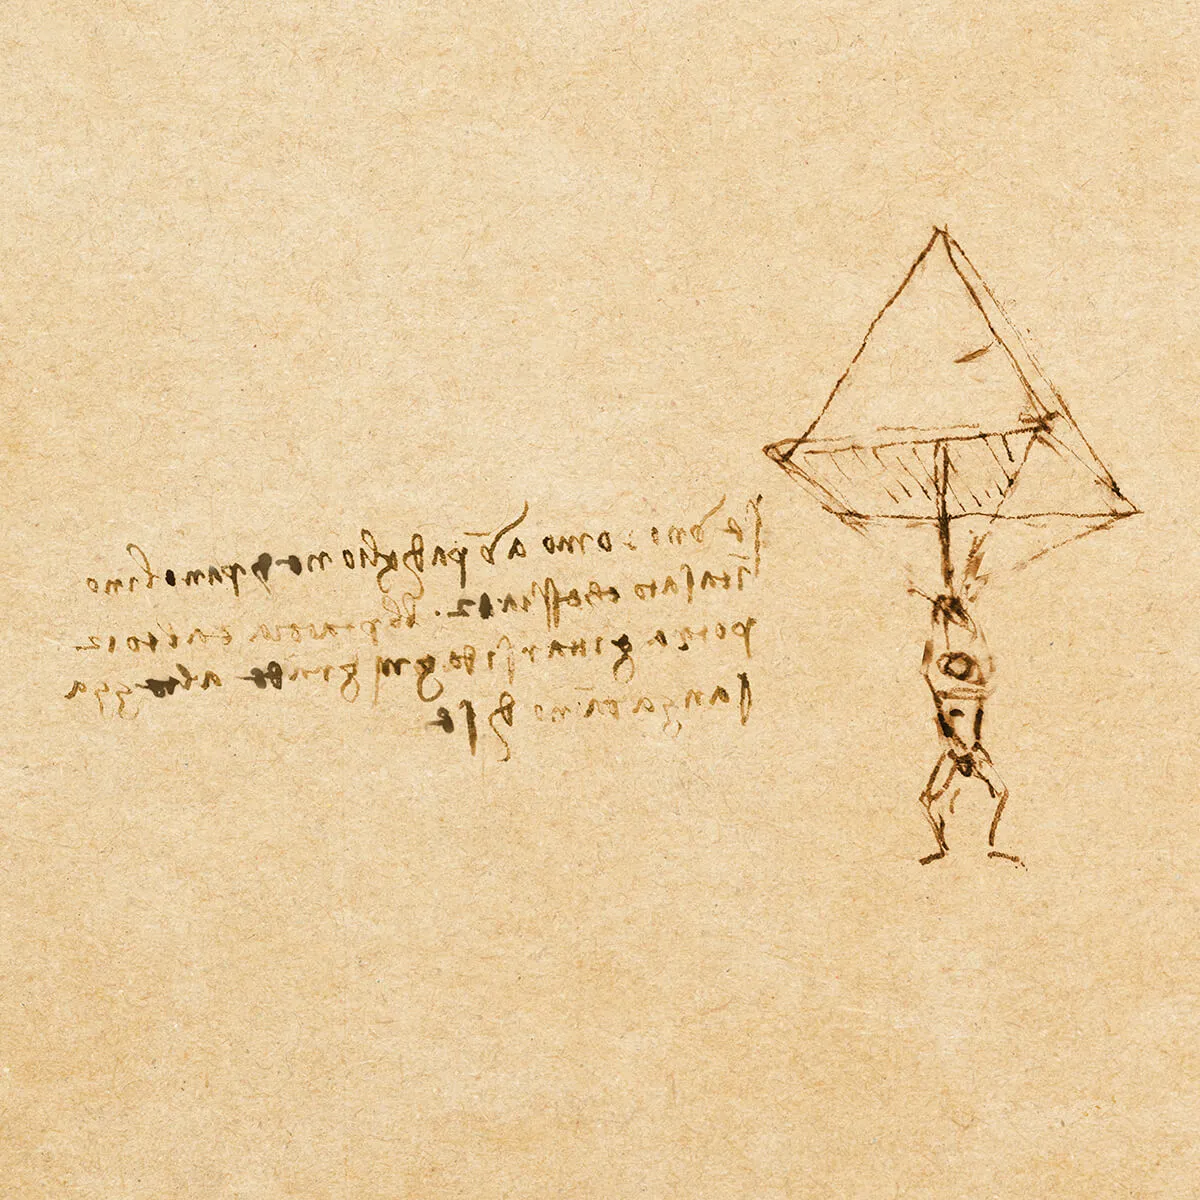 se ũ omo a ũ padiglione dpanolino
ītasato che ssia 12 . br p faccia e alto 12
potra gittarsi dogni grande alteza
sanza dāno di se